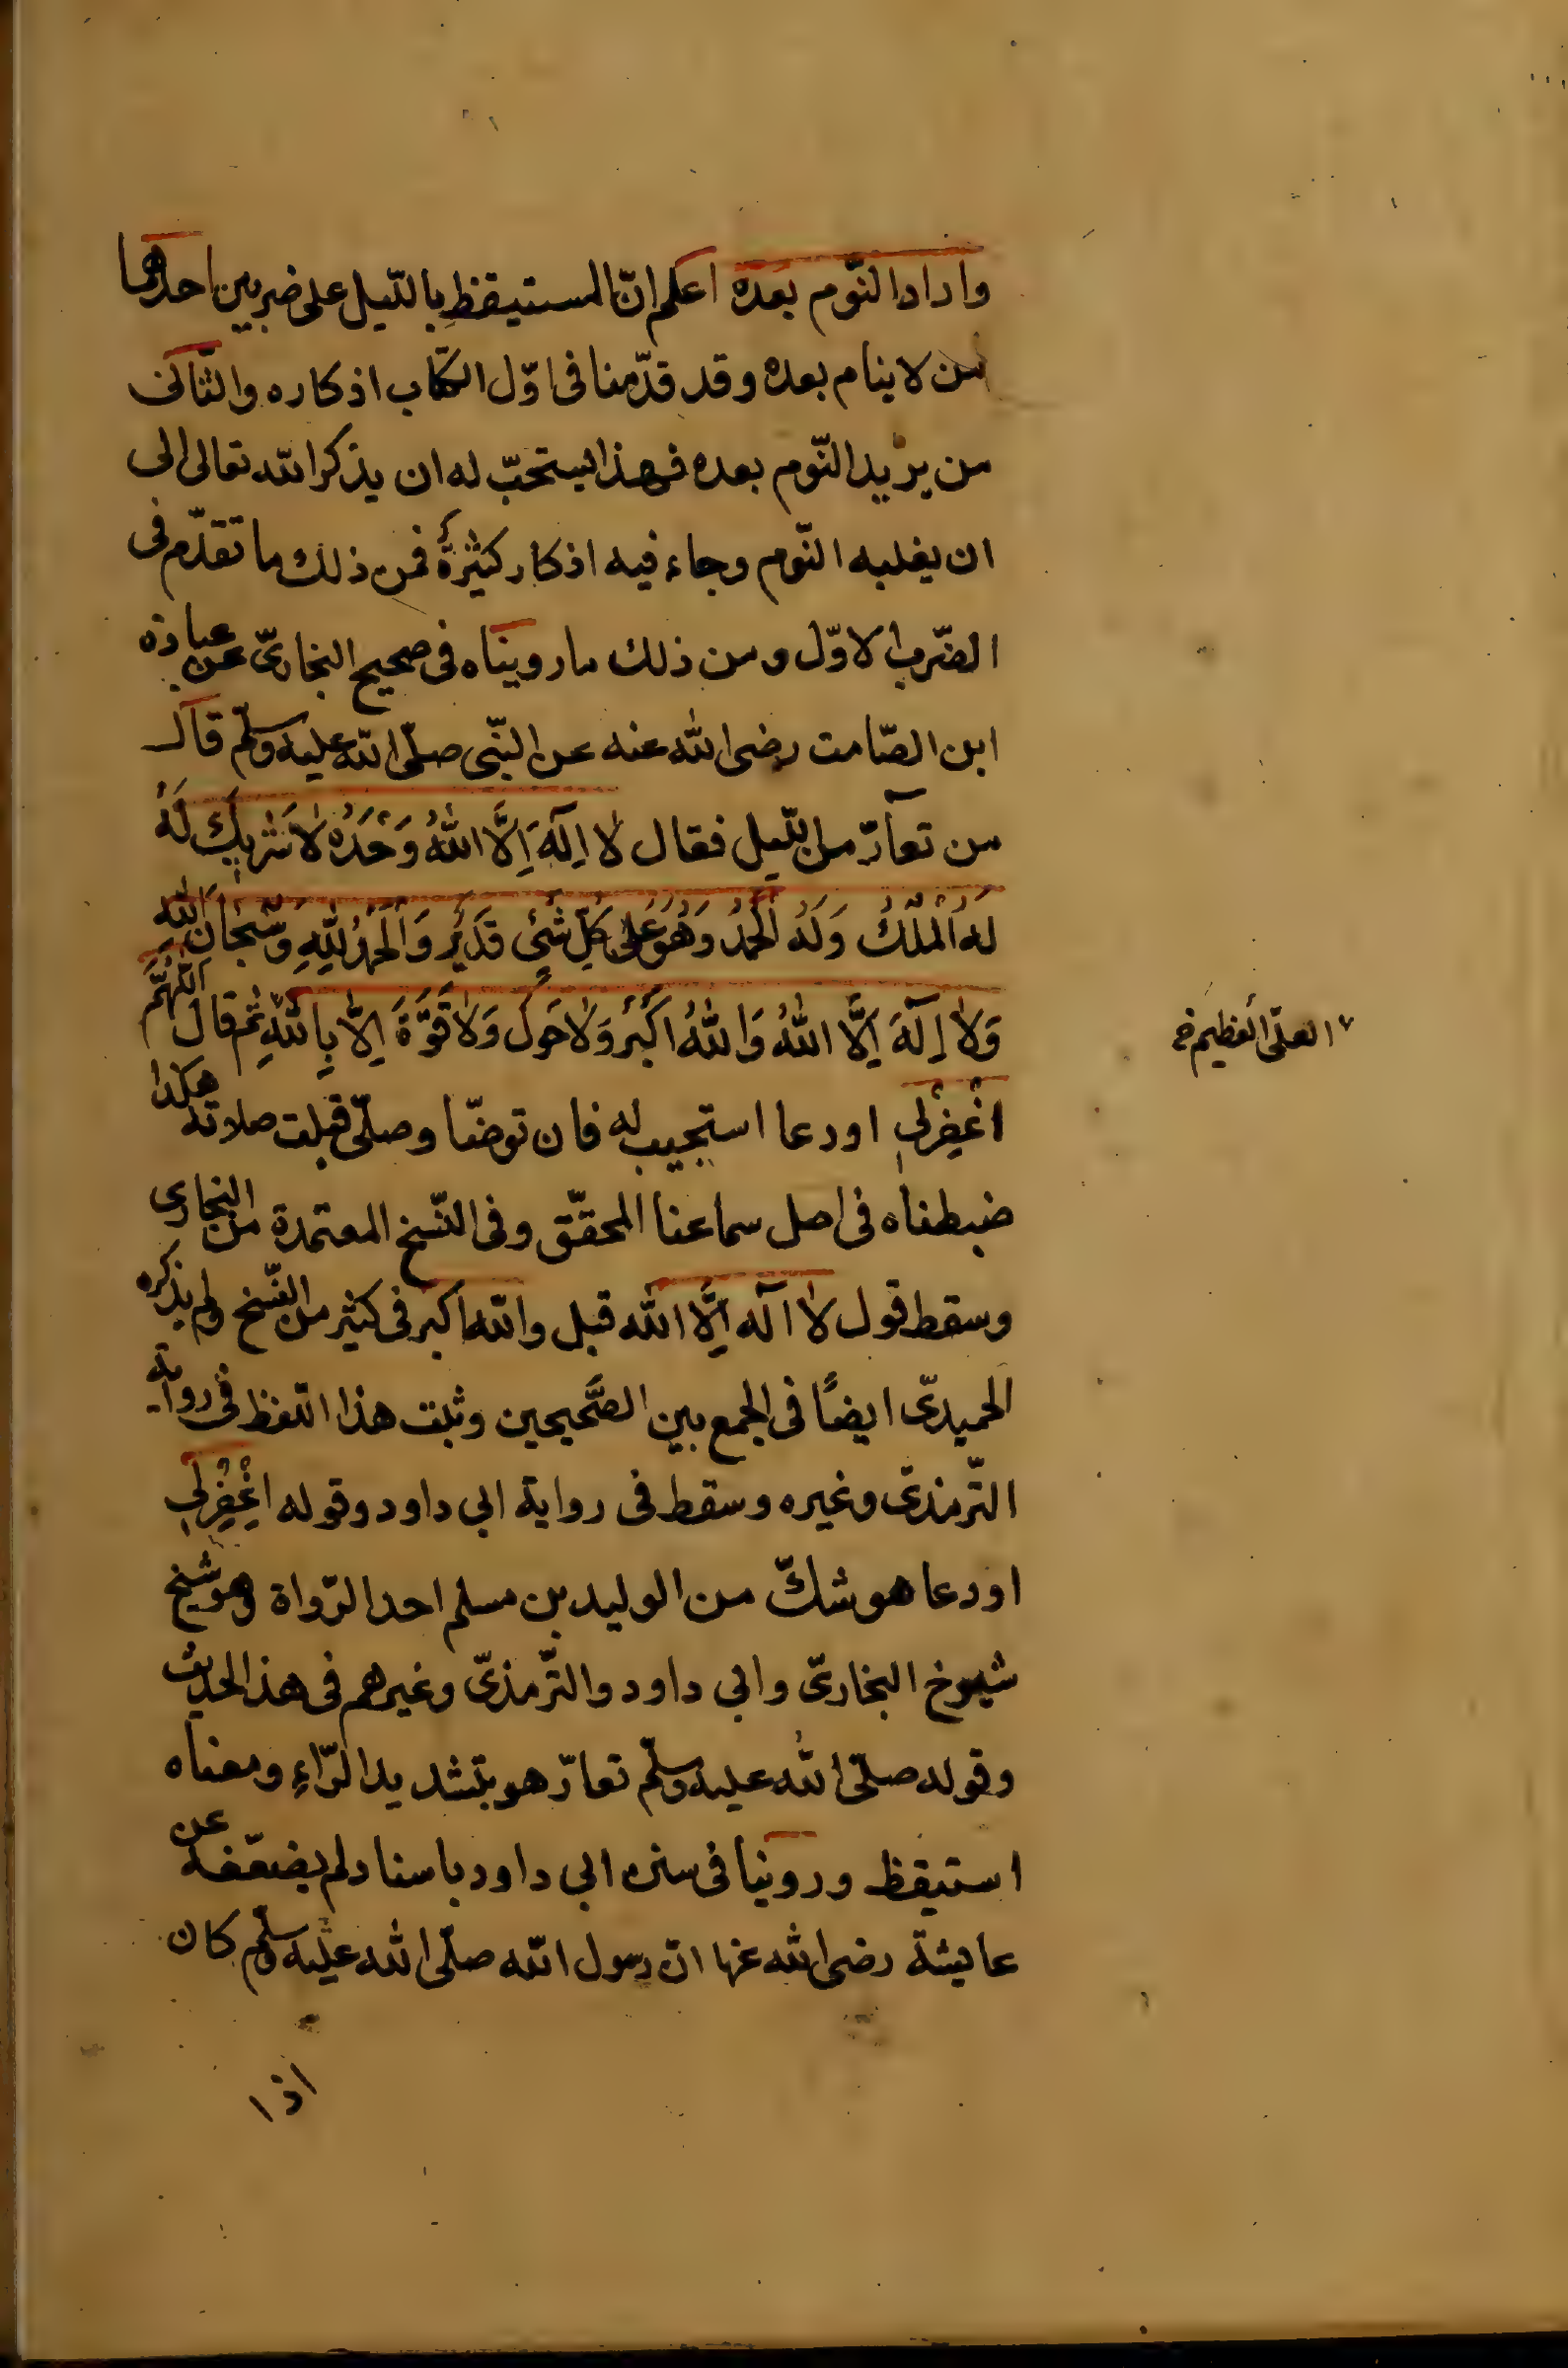 وارادالنّوم بعده اعلم انّ المستيقظ بالليل على ضربين احدهما
من لا ينام بعده وقد قدّمنا فى اوّل الكتاب اذكاره والثّانى
من يريد النّوم بعده فهذا يستحبّ له ان يذكر الله تعالى الى
ان يغلبه النّوم وجاء فيه اذكار كثيرةٌ فمن ذلك ما تقدّم فى
الضّرب الاوّل ومن ذلك ما رويناه فى صحيح البخارىّ عن عبادة
ابن الصّامت رضى الله عنه عن النّبى صلّى الله عليه وسلّم قال
من تعآرّ من الّليل فقال لا اِلَهَ اِلَّا اللهُ وَحْدَهُ لَا شَرِيكَ لَهُ
لَهُ الْمُلْكُ وَلَهُ الْحَمْدُ وَهُوَ عَلَى كُلِّ شَيْءٍ قَدِيرٌ وَالْحَمْدُ لِلّهِ وَسُبْحَانَ اللهِ
وَلَا اِلَهَ اِلَّا اللهُ وَاللهُ اَكْبَرُ وَلَا حَوْلَ وَلَا قُوَّةَ اِلَّا بِاللهِ ثم قال اللّهُمَّ
العلىّ العظيم
اغْفِرْلِى او دعا استجيب له فان توضّا وصلّى قبلت صلاته هكذا
ضبطناه فى اصل سماعنا المحقّق وفى النّسخ المعتمدة من البخارى
وسقط قول لا اله اِلَّا الله قبل والله اكبر فى كثير من النّسخ ولم يذكره
الحميدىّ ايضًا فى الجمع بين الصَّحيحين وثبت هذا اللّفظ فى رواية
التّرمذىّ وغيره وسقط فى رواية ابى داود وقوله اغْفِرْلِى
او دعا هو شكّ من الوليد بن مسلم احد الرّواة وهو شيخ
شيوخ البخارىّ وابى داود والتّرمذىّ وغيرهم فى هذا الحديث
وقوله صلّى الله عليه وسلّم تعارّ هو بتشديد الرّاءِ ومعناه
استيقظ وروينا فى سنن ابى داود باسناد لم يضعّفه عن
عايشة رضى الله عنها انّ رسول الله صلّى الله عليه وسلّم كان
اذا